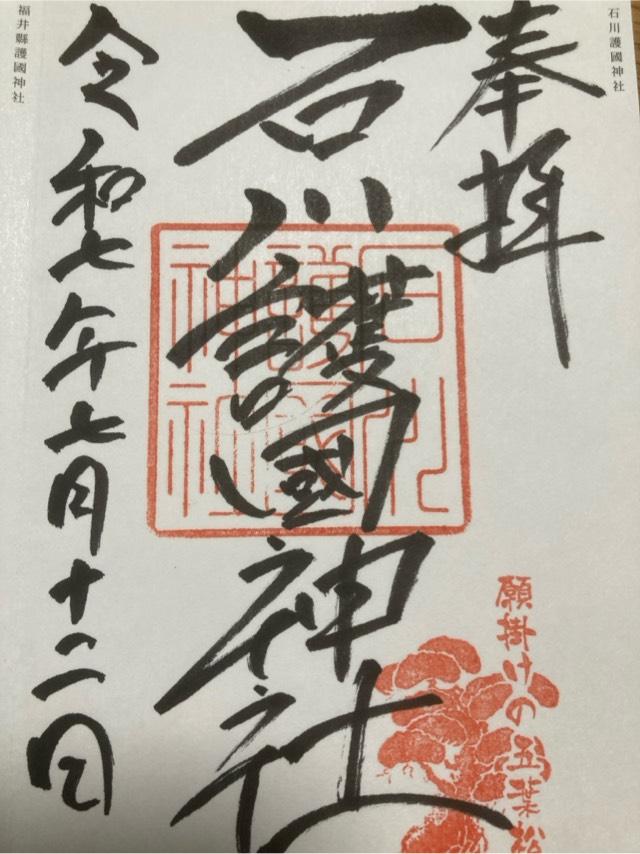 石川護國神社
奉拝
石川護國神社
石川
護國
神社
願掛けの五葉松
令和七年七月十二日
福井縣護國神社